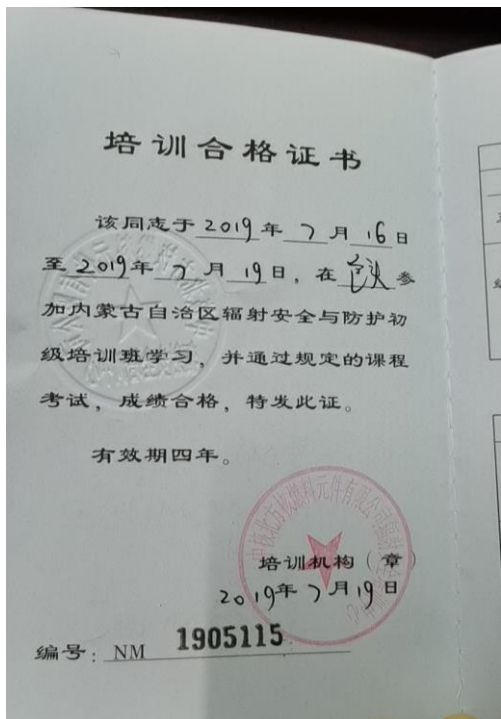 培训合格证书
该同志于2019年7月16日
至2019年7月19日，在包头参
加内蒙古自治区辐射安全与防护初
级培训班学习，并通过规定的课程
考试，成绩合格，特发此证。
有效期四年。
中核北方核燃料元件有限公司辐射
培训机构（章）
2019年7月19日
编号：NM 1905115